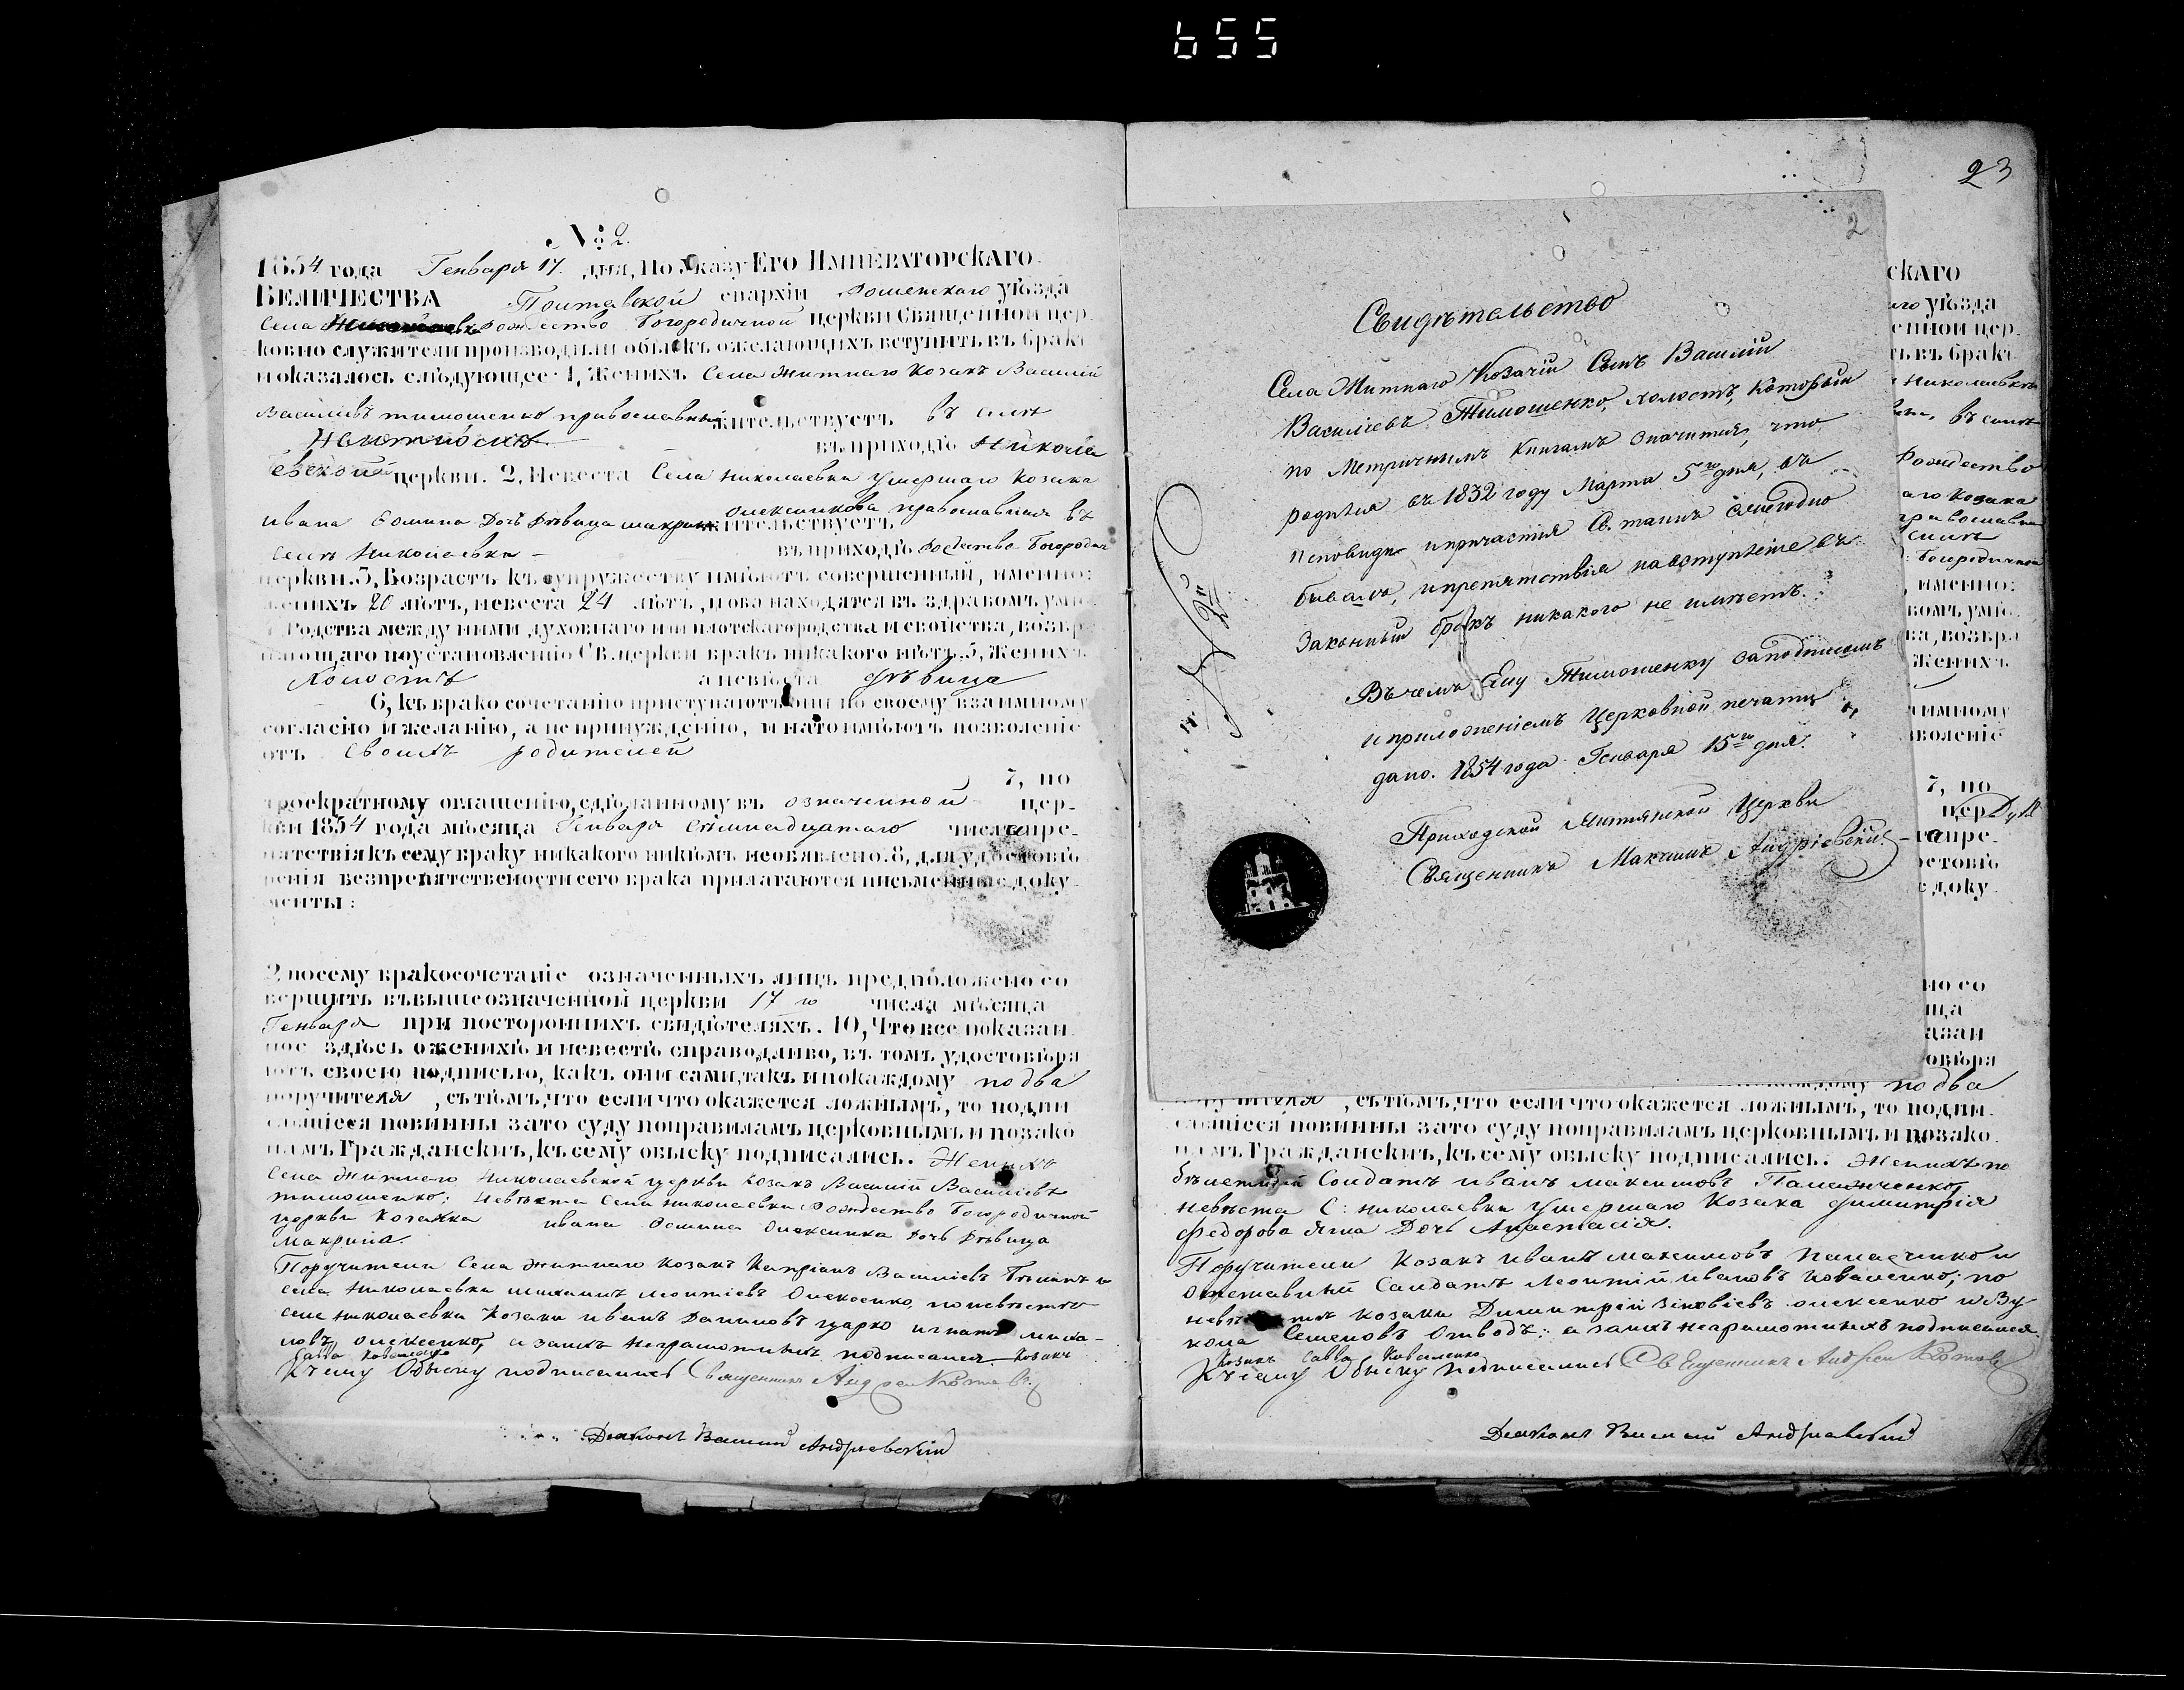 655
№ 2.
1854 года Генваря 17. дня, По Указу Его Императорскаго
Величества Полтавской епархіи Роменскаго уѣзда
Села Рождество Богородичной церкви Священной цер-
ковно служители производили обыскъ ожелающихъ вступить въ бракъ
и оказалось слѣдующее: 1, Женихъ Села Житнаго Козакъ Василій
Васильевъ Тимошенко православный жительствуетъ въ селѣ
въ приходѣ Никола
евской церкви. 2, Невеста Села Николаевки умершаго Козака
Ивана Дочь Дѣвица православная въ
селѣ Николаевки - въ приходѣ Рождество Богородич
церкви. 3, Возрастъ къ супружеству имѣютъ совершенный, именно:
женихъ 20 лѣтъ, невеста 24 лѣтъ, и оба находятся въ здравомъ умѣ
Родства между ними духовнаго или плотскагородства и свойства, возбр
няющаго поустановленію Св. церкви бракъ никакого нѣтъ. 5, Женихъ
Холостъ а невѣста дѣвица
6, къ брако сочетанію приступаютъ они по своему взаимному
согласію и желанію, а не принужденію, и нато имѣютъ позволеніе
отъ своихъ родителей
7, по
троекратному оглашенію, сдѣланному въ означенной цер-
кви 1854 года мѣсяца Генваря Семнадцатаго числа пре-
пятствія къ сему браку никакого никѣмъ необявлено. 8, для удостовѣ
ренія безпрепятствености сего брака прилагаются письменные доку-
менты:
посему бракосочетаніе означенныхъ лицъ предположено со
вершить въ вышеозначенной церкви 17 го числа мѣсяца
Генваря при постороннихъ свидѣтеляхъ. 10, Что все показан
ное здѣсь оженихѣ и невестѣ справодливо, въ томъ удостовѣря
ютъ своею подписью, какъ они сами, такъ и покаждому по два
поручителя, сътѣмъ, что если что окажется ложнымъ, то подпи
савшіеся повинны зато суду поправиламъ церковнымъ и позако
намъ Гражданскимъ, къ сему обыску подписались. Женихъ
Села Житнаго Николаевской церкви Козакъ Василій Васильевъ
Тимошенко; невѣста Села Николаевки Рождество Богородичной
церкви Ивана Дочь Дѣвица
Макрина.
Поручители Села Житнаго Козакъ Василіевъ
села Николаевки Леонтіевъ Олексенко, по невѣстѣ
селе Николаевки Козаки Иванъ Даниловъ и
ловъ Олексенко, а занихъ неграмотныхъ подписался Козакъ
Савва Коваленко
Къ сему Обыску подписались Священникъ Андрей
Діаконъ Василий Андріевскій
23
2
Свидѣтельство
Села Житнаго Козачій Сынъ Василій
Васильевъ Тимошенко, холостъ, который
по Метричнымъ Книгамъ значится, что
родился въ 1832 году Марта 5го дня, въ
исповѣди и причастія Св. таинъ ежегодно
бывалъ, и препятствія на вступленіе въ
Законный бракъ никакого не имѣетъ.
Въ чемъ Ему Тимошенку заподписомъ
и приложеніемъ Церковной печати
дано. 1854 года Генваря 15го дня.
Приходской Житнянской Церкви
Священникъ Максимъ Андріевскій.
скаго
уѣзда
енной цер-
ть въ бракъ
Николаевки
въ селѣ
Рождество
Козака
селѣ
Богородичной
именно:
вомъ умѣ
ва, возбра
Женихъ
имному
зволеніе
7, по
цер
пре-
остовѣ
доку-
но со
ца
азан
овѣря
по два
, сътѣмъ, что если что окажется ложнымъ, то подпи-
савшіеся повинны зато суду поправиламъ церковнымъ и позако-
намъ Гражданскимъ, къ сему обыску подписались. Женихъ
Солдатъ Иванъ Максимовъ
невѣста С: Николаевки умершаго Козака Димитрія
Федорова Дочь Анастасія.
Поручители Козакъ Иванъ Максимовъ и
отставный Салдатъ Леонтій Ивановъ Коваленко; по
Козаки Димитрій Зіновіевъ Олексенко и Ву
кола Семеновъ; а занихъ неграмотныхъ подписался
Козакъ Савва Коваленко
Къ сему Обыску подписались Священникъ Андрей
Діаконъ Василий Андріевскій